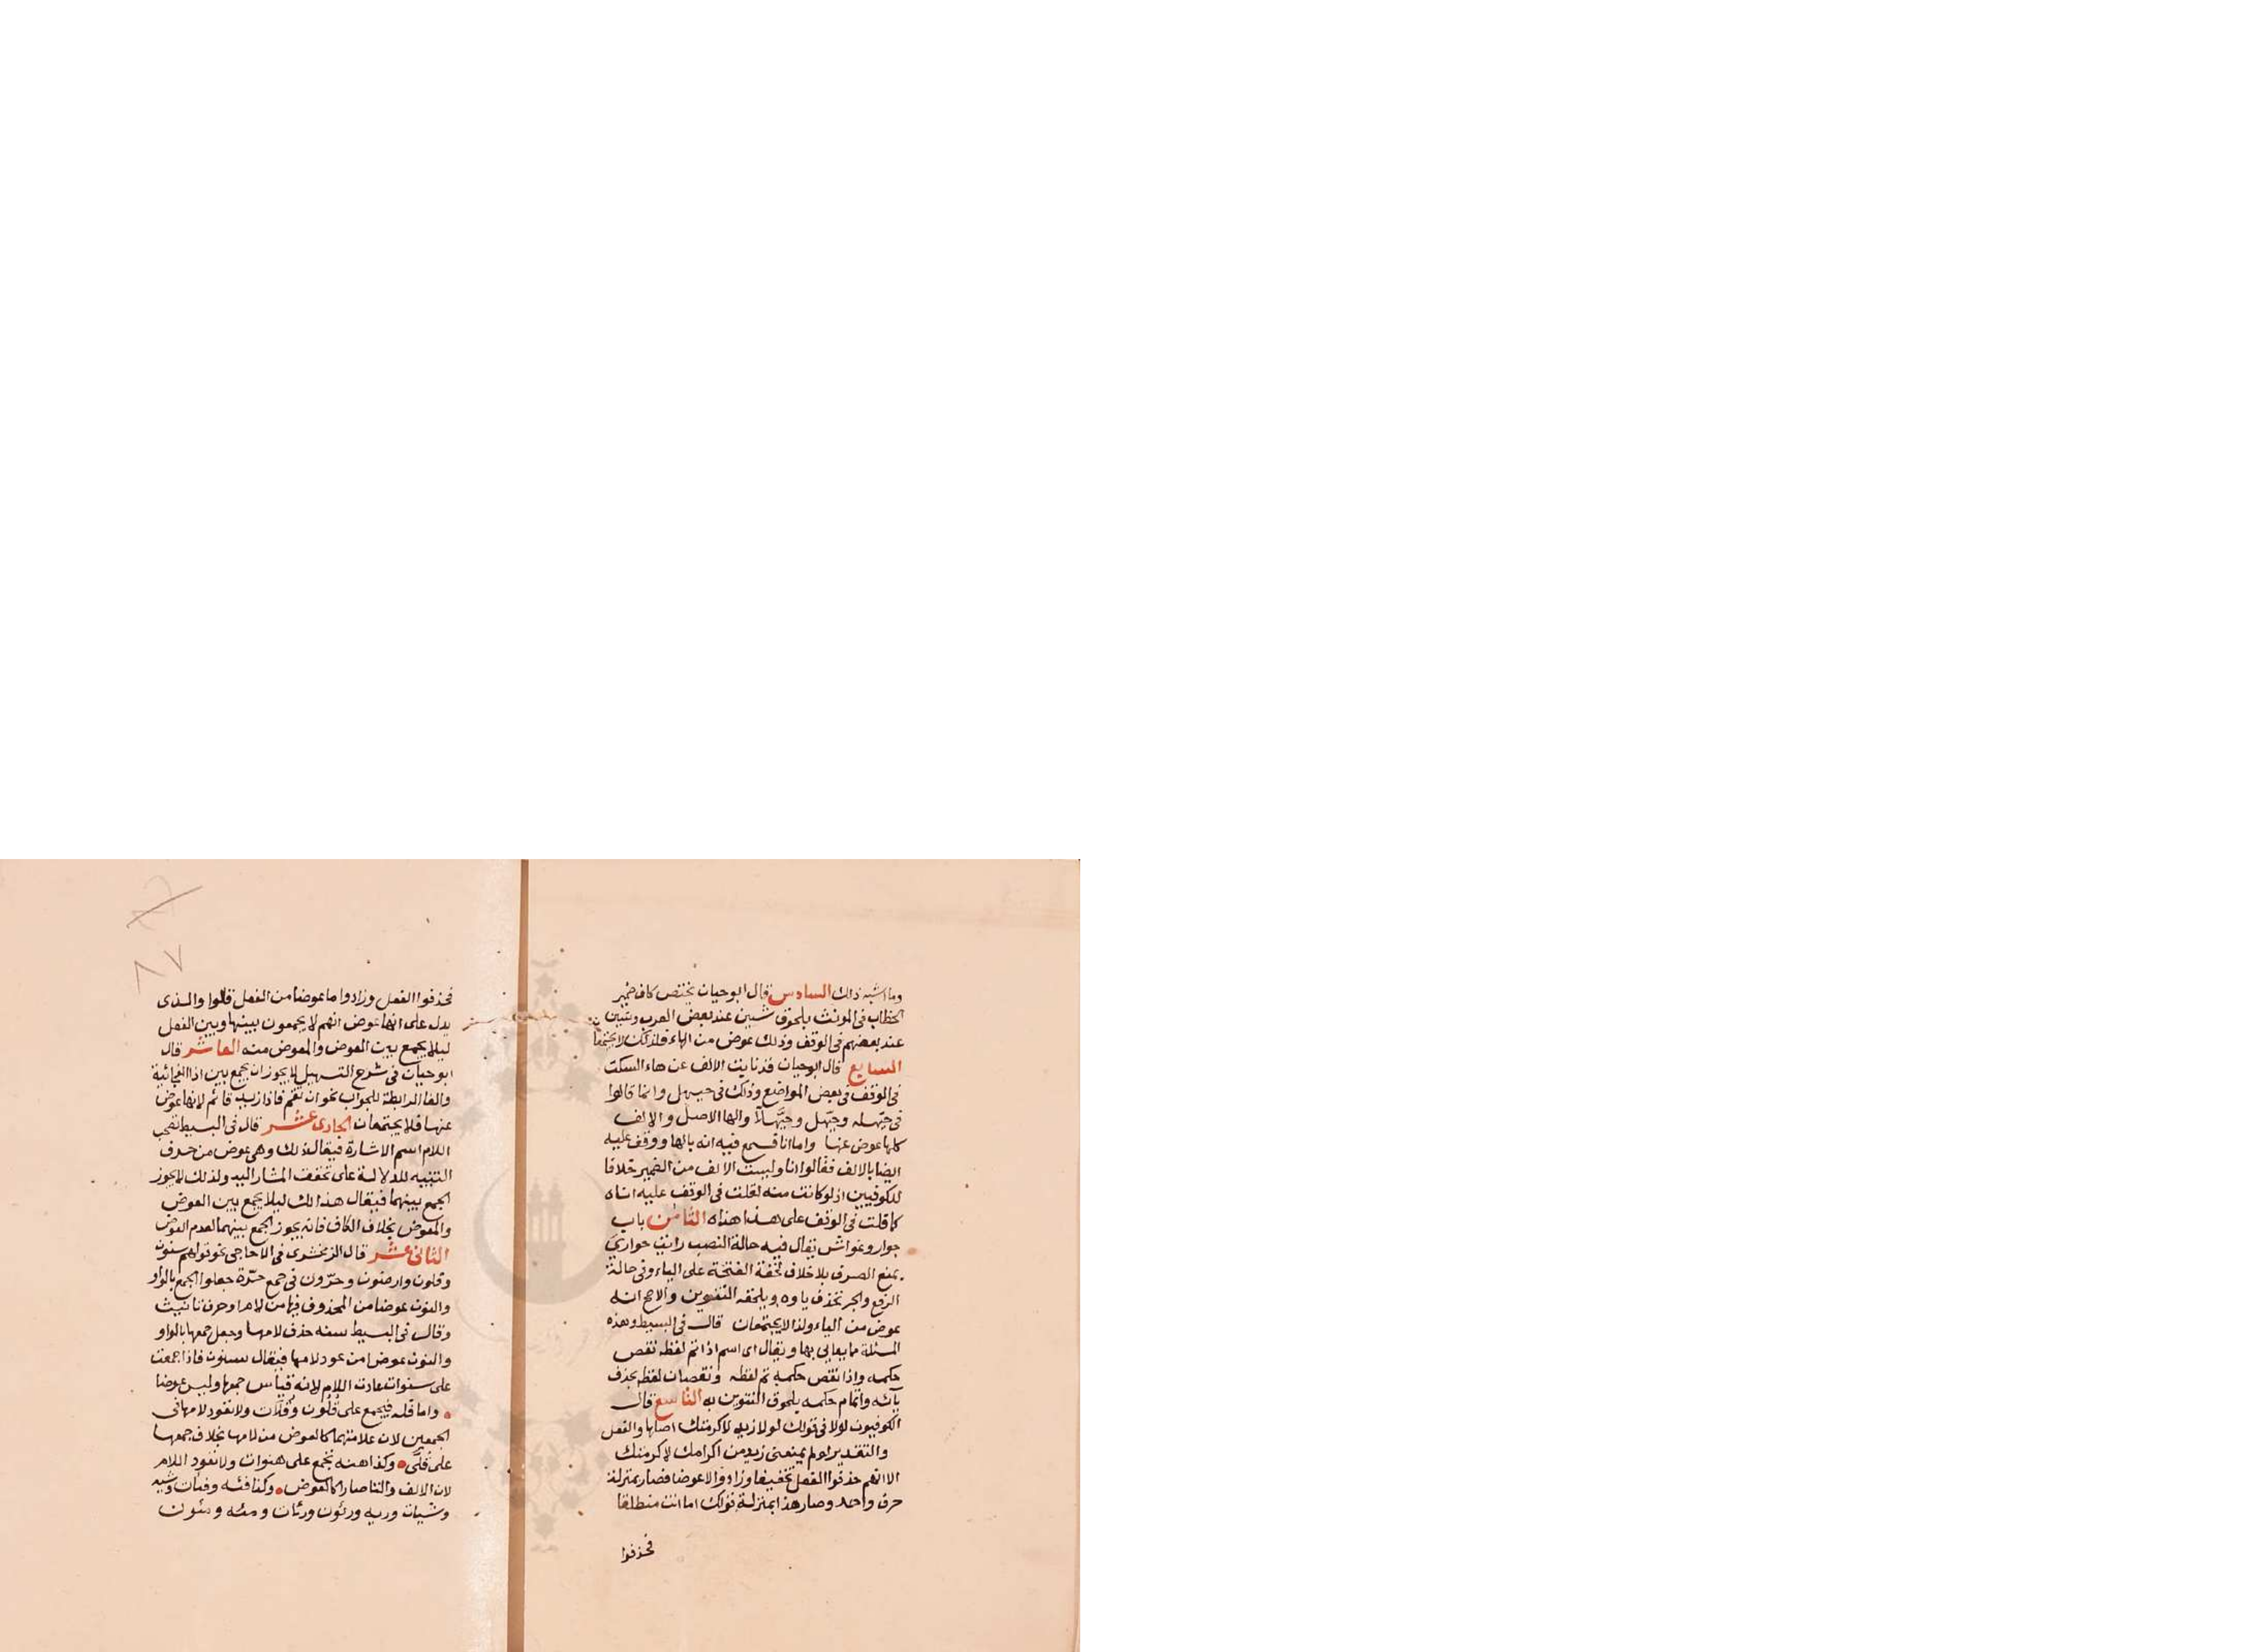 وما اشبه ذلك السادس قال ابوحيان تختص كاف ضمير
الخطاب فى المونث بلحوق شين عند بعض العرب وسين
عند بعضهم فى الوقف وذلك عوض من الهاء فلذلك لا يجتمعا
السابع قال ابوحيان قد نابت الالف عن هاء السكت
فى الوقف فى بعض المواضع وذلك فى حيهل وانا قالوا
فى حيّهله وحيّهل وحيّهلا والها الاصل والالف
كلها عوض عنها واما انا فسمع فيه انه بالها ووقف عليه
ايضا بالالف فقالوا انا وليست الالف من الضمير خلافا
للكوفيين اذ لو كانت منه لقلت فى الوقف عليه اناه
كما قلت فى الوقف على هذا هذاه الثامن باب
جوار وغواش يقال فيه حالة النصب رايت جوارىَ
بمنع الصرف بلا خلاف لخفة الفتحة على الياء وفى حالة
الرفع والجر تحذف ياوه ويلحقه التنوين والاصح انه
عوض من الياء ولذا لا يجتمعان قال فى البسيط وهذه
المسئلة مما يعايى بها ويقال اى اسم اذا تم لفظه نقص
حكمه واذا نقص حكمه تم لفظه ونقصان لفظه بحذف
يآئه واتمام حكمه بلحوق التنوين به التاسع قال
الكوفيون لولا فى قولك لولا زيد لاكرمتك اصلها والفعل
والتقدير لو لم يمنعنى زيد من اكرامك لاكرمتك
الا انهم حذفوا الفعل تخفيفا وزادوا لا عوضا فصار بمنزلة
حرف واحد وصار هذا بمنزلة قولك اما انت منطلقا
فحذفوا
فحذفوا الفعل وزادوا ما عوضا من الفعل قالوا والذى
يدل على انها عوض انهم لا يجمعون بينها وبين الفعل
ليلا يجمع بين العوض والمعوض منه العاشر قال
ابوحيان فى شرح التسهيل لا يجوز ان يجمع بين اذا الفجائية
والفا الرابطة للجواب نحو ان تقم فاذا زيد قائم لانها عوض
عنها فلا يجتمعان الحادى عشر قال فى البسيط تصحب
اللام اسم الاشارة فيقال ذلك وهى عوض من حرف
التنبيه للدلالة على تحقق المشار اليه ولذلك لا يجوز
الجمع بينهما فيقال هذالك ليلا يجمع بين العوض
والمعوض بخلاف الكاف فانه يجوز الجمع بينهما لعدم العوض
الثانى عشر قال الزمخشرى فى الاحاجى نحو قولهم سنون
وقلون وارضون وحرّون فى جمع حرّة جعلوا الجمع بالواو
والنون عوضا من المحذوف فيها من لام او حرف تانيث
وقال فى البسيط سنه حذف لامها وجعل جمعها بالواو
والنون عوضا من عود لامها فيقال سنون فاذا جمعت
على سنوات عادت اللام لانه قياس جمعها وليس عوضا
واما قله فيجمع على قُلُون وقُلَات ولا تعود لامها فى
الجمعين لان علامتهما كالعوض من لامها بخلاف جمعها
على قلى وكذا هنه تجمع على هنوات ولا تعود اللام
لان الالف والتا صارا كالعوض وكذا فئه وفئات وشيه
وشيات وريه ورئون ورئات ومئه ومئون